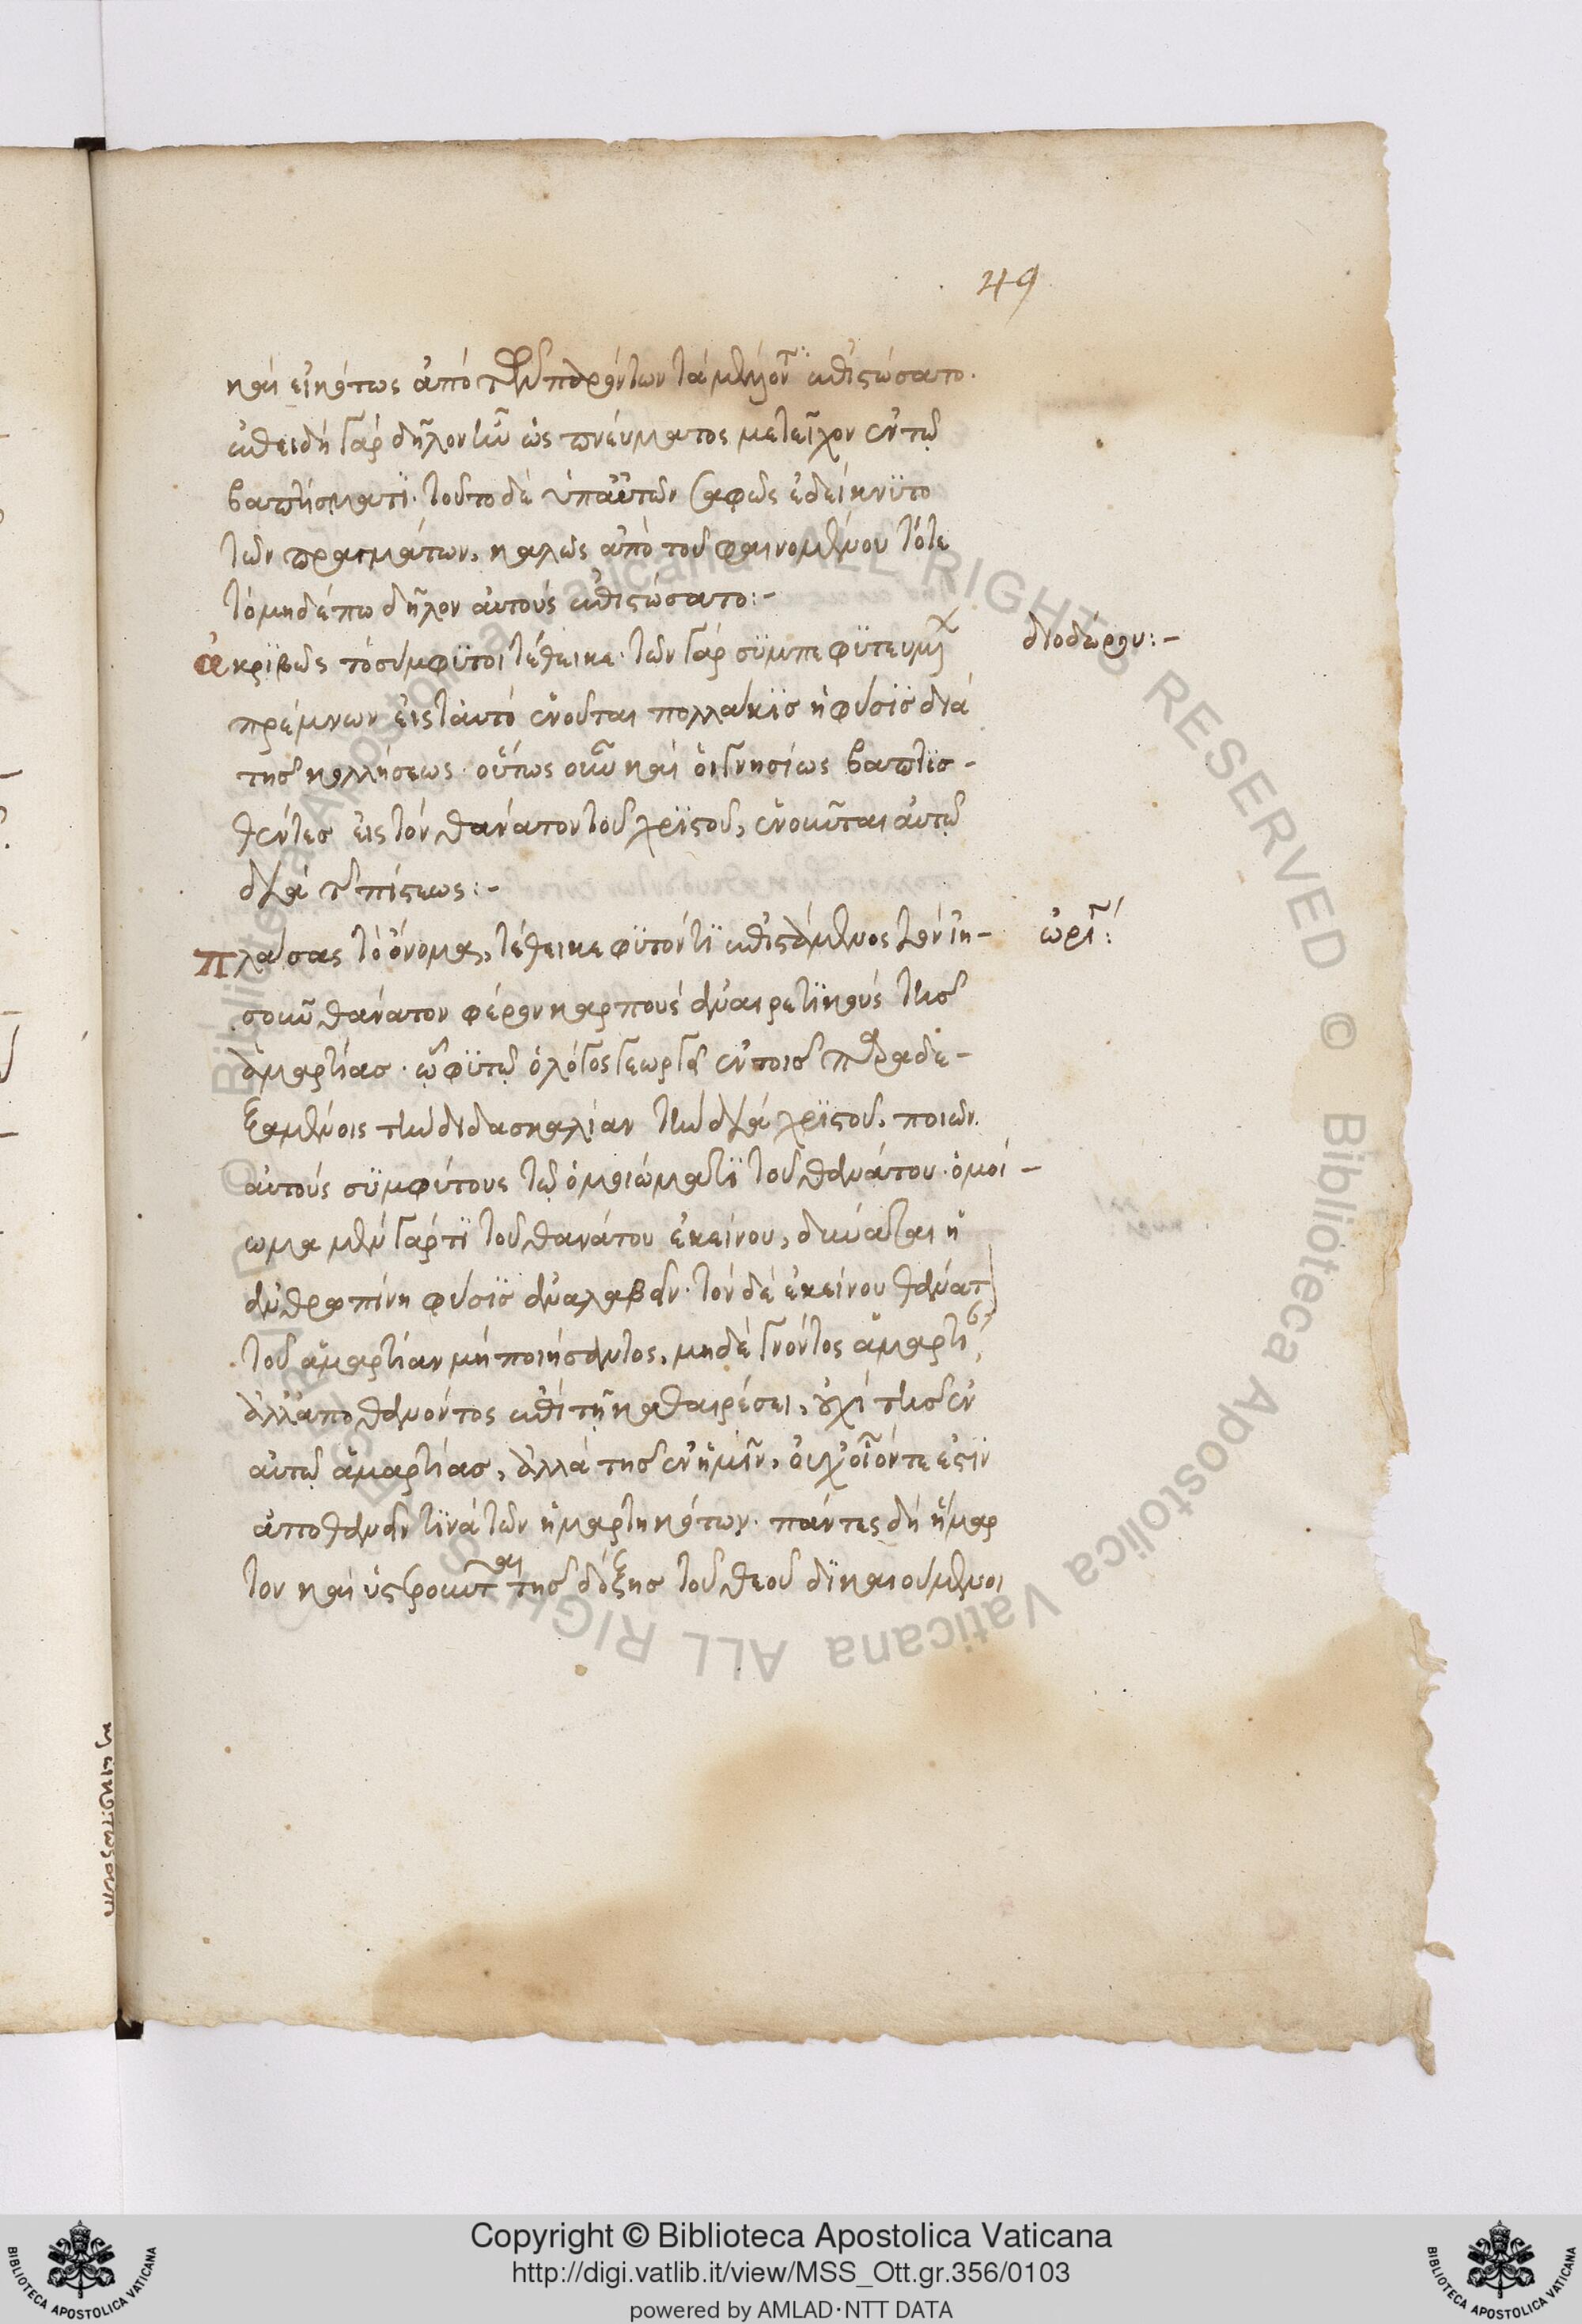 49
καὶ εἰκότως ἀπὸ τῶν παρόντων τὰ μέλλοντα ἐπιστώσατο.
ἐπειδὴ γὰρ δῆλον ἦν ὡς πνεύματος μετεῖχον ἐν τῷ
βαπτίσματι· τοῦτο δὲ ὑπ' αὐτῶν σαφῶς ἐδείκνυτο
τῶν πραγμάτων, καλῶς ἀπὸ τοῦ φαινομένου τότε
τὸ μηδέπω δῆλον αὐτοὺς ἐπιστώσατο:-
ἀκριβῶς τὸ σύμφυτοι τέθεικε· τῶν γὰρ συμπεφυτευμένων
διοδώρου:-
πρέμνων εἰς ταὐτὸ ἑνοῦται πολλάκις ἡ φύσις διὰ
τῆς κολλήσεως· οὕτως οὖν καὶ οἱ γνησίως βαπτισ-
θέντες εἰς τὸν θάνατον τοῦ χριστοῦ, ἑνοῦνται αὐτῷ
διὰ τῆς πίστεως:-
πλάσας τὸ ὄνομα, τέθεικε φυτόν τι ἐπιστάμενος τὸν ἰη-
ὠρι:
σοῦ θάνατον φέρον καρποὺς ἀναιρετικοὺς τῆς
ἁμαρτίας· ᾧ φυτῷ ὁ λόγος γεωργεῖ ἐν τοῖς παραδε-
ξαμένοις τὴν διδασκαλίαν τὴν διὰ χριστοῦ, ποιῶν
αὐτοὺς συμφύτους τῷ ὁμοιώματι τοῦ θανάτου· ὁμοί-
ωμα μὲν γάρ τι τοῦ θανάτου ἐκείνου, δύναται ἡ
ἀνθρωπίνη φύσις ἀναλαβεῖν· τὸν δὲ ἐκείνου θάνατον
τοῦ ἁμαρτίαν μὴ ποιήσαντος, μηδὲ γνόντος ἁμαρτίαν,
ἀλλ' ἀποθανόντος ἐπὶ τῇ καθαιρέσει, οὐχὶ τῆς ἐν
αὐτῷ ἁμαρτίας, ἀλλὰ τῆς ἐν ἡμῖν, οὐχ οἷόν τε ἐστὶν
ἀποθανεῖν τινὰ τῶν ἡμαρτηκότων· πάντες δὴ ἥμαρ
τον καὶ ὑστεροῦνται τῆς δόξης τοῦ θεοῦ δικαιούμενοι
Copyright © Biblioteca Apostolica Vaticana
http://digi.vatlib.it/view/MSS_Ott.gr.356/0103
powered by AMLAD·NTT DATA